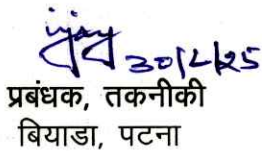 30/2/25
प्रबंधक, तकनीकी
बियाडा, पटना